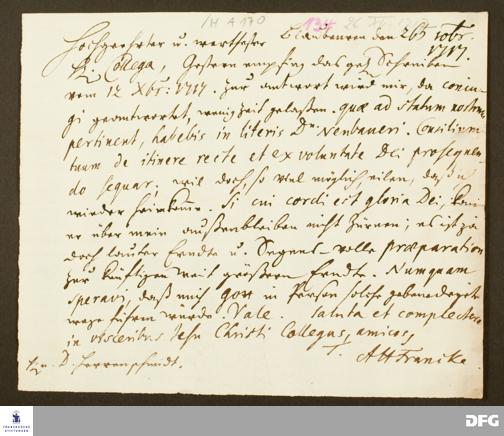 /H A 170
134 26
Blaubeuren den 26 Xobr.
1717.
Hochgeehrter u. werthester
H. Collega, Gestern empfing das geh. Schreiben
vom 12 Xbr: 1717. Zur antwort wird mir, da coniu-
gi geantwortet, wenig Zeit gelaßen. quae ad statum nostrum
pertinent, habebis in literis Dn. Neubaueri. Consilium
tuum de itinere recte et ex voluntate Dei prosequen-
do sequar; wil doch, so viel möglich, eilen, daß
wieder heimkomme. Si cui cordi est gloria Dei, kan
er über mein außenbleiben nicht zürnen; es ist ja
doch lauter Erndte u. Segens-volle praeparation
zur künftigen weit größern Erndte. Numquam
speravi, daß mich Gott in Person solche gebenedeyete
wege führen würde. Vale. Saluta et complectere
in visceribus Jesu Christi Collegas, amicos,
T. AHFrancke.
H. D. Herrnschmidt.
FRANCKESCHE STIFTUNGEN
DFG